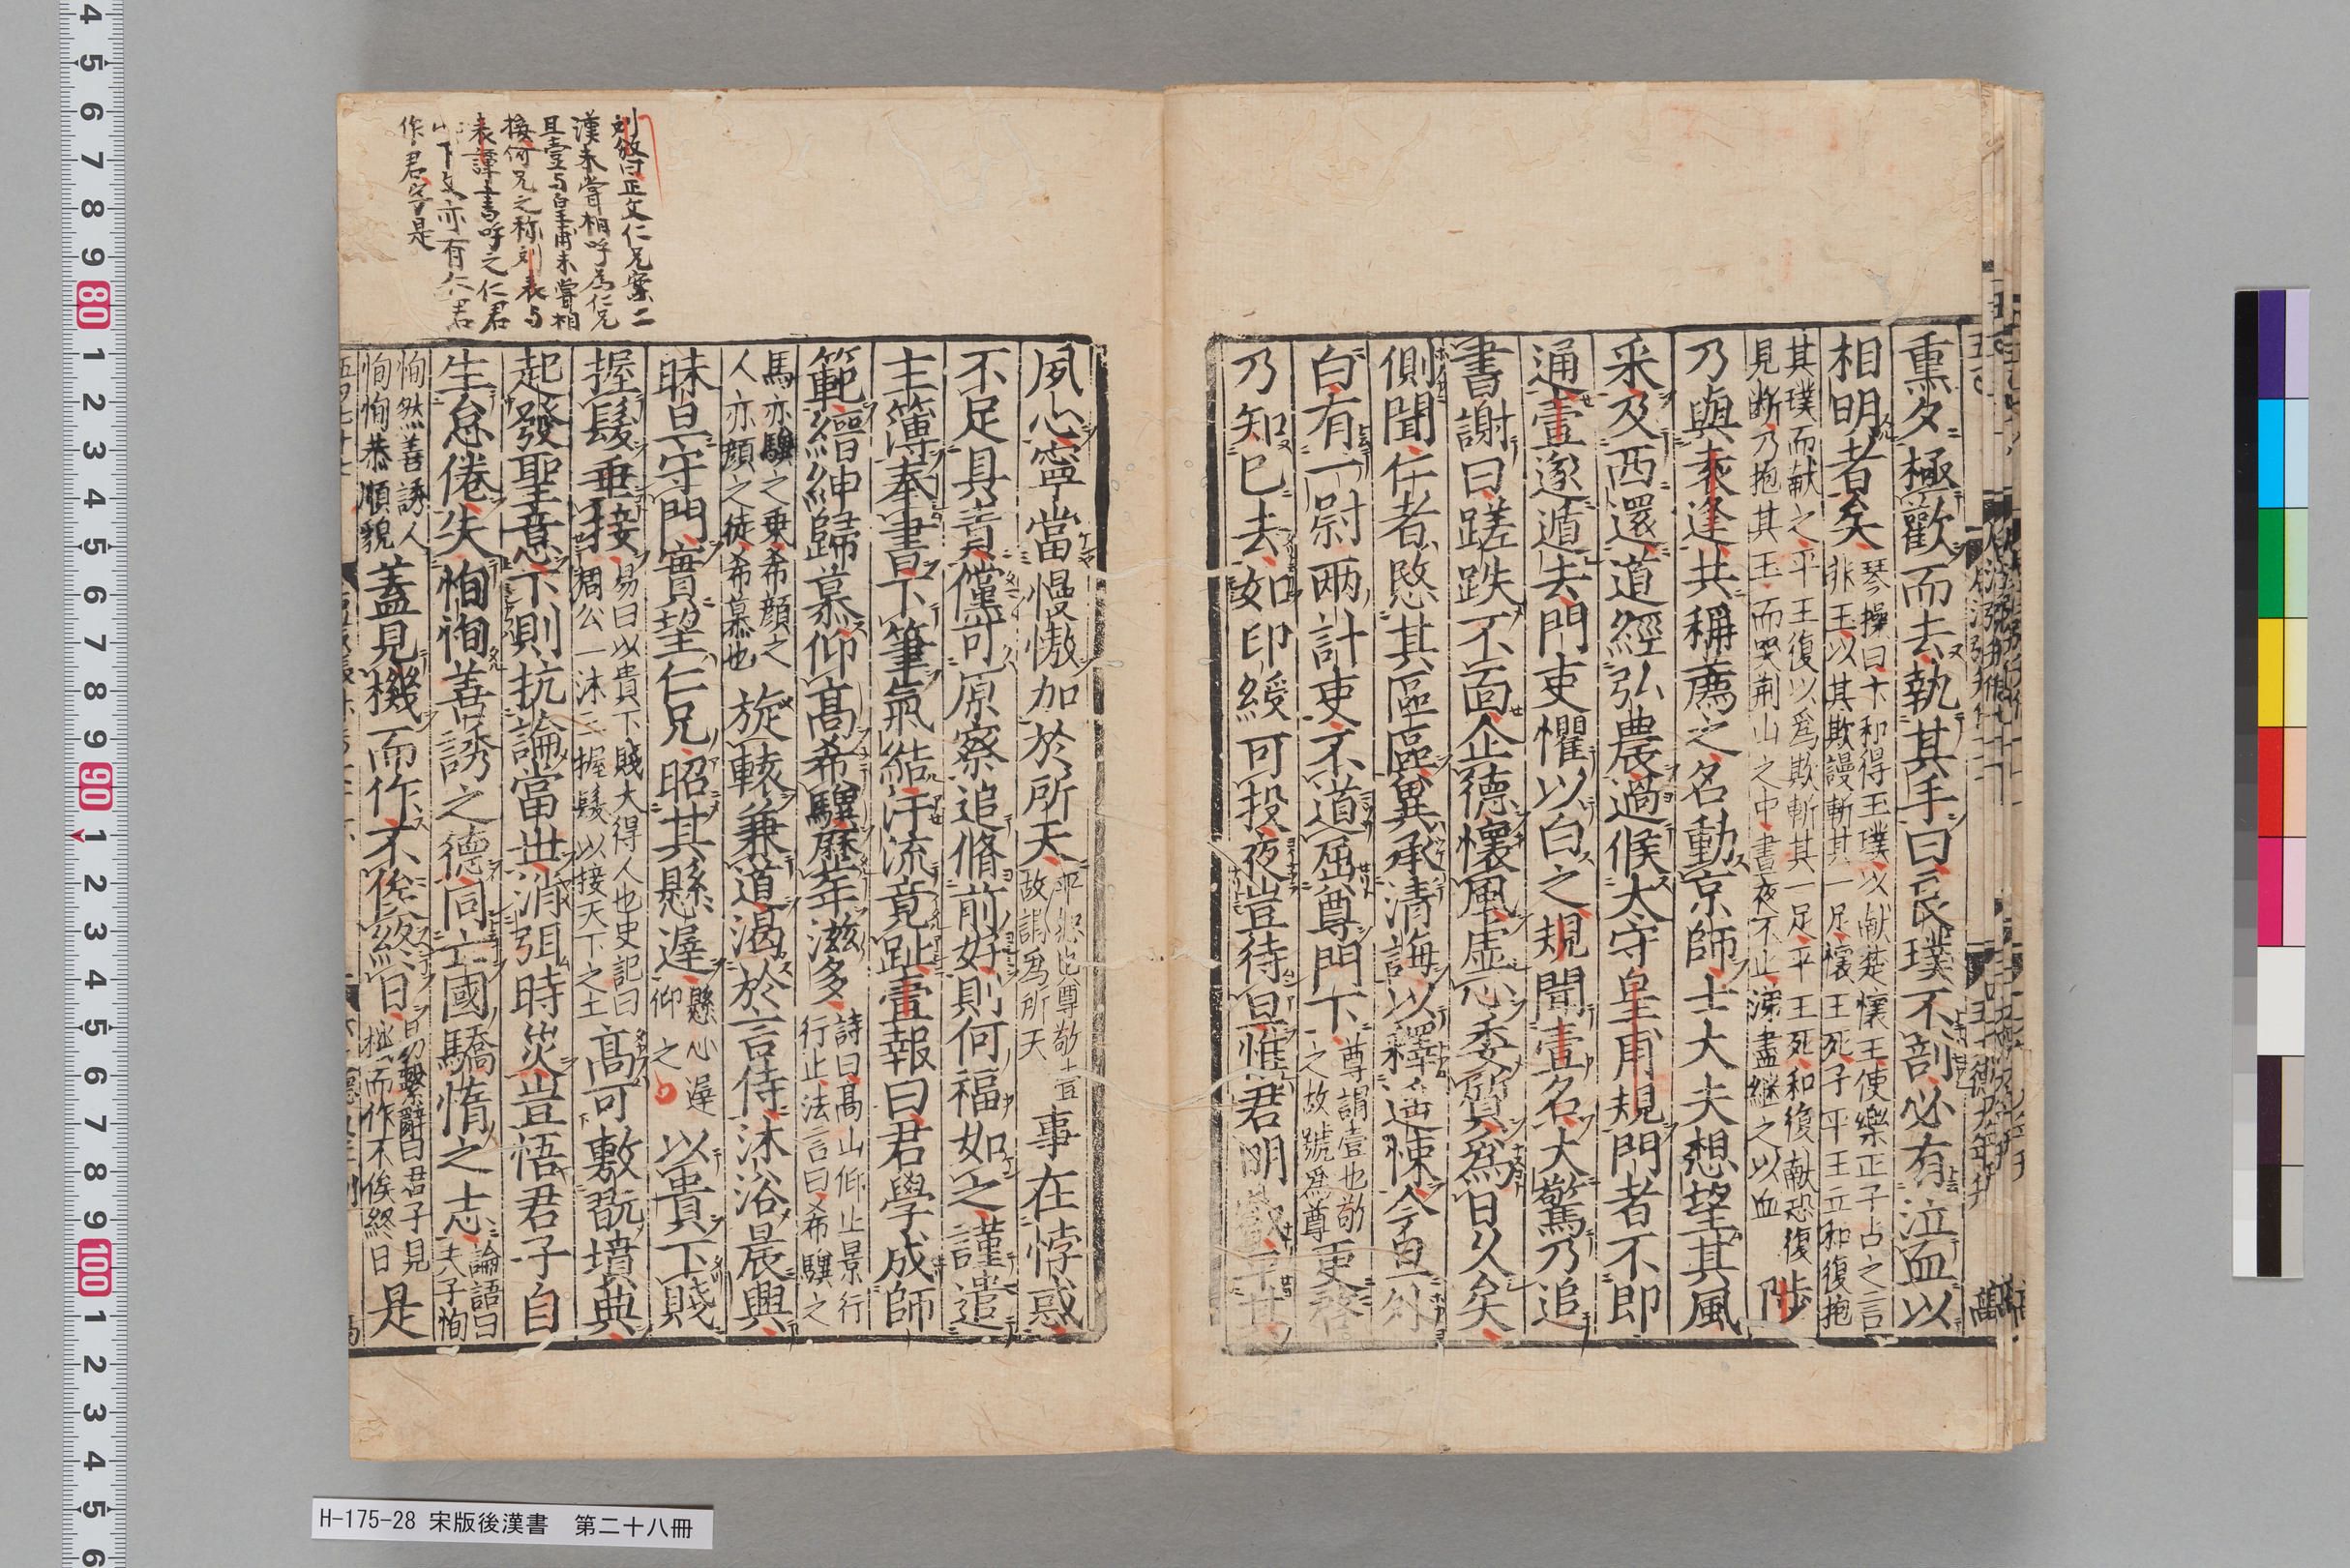 熏夕極歡而去執其手曰良璞不剖必有泣血以
相明者矣 琴操曰卞和得玉璞以獻楚懷王使樂正子占之言
非玉以其欺謾斬其一足懷王死子平王立和復抱
其璞而獻之平王復以爲欺斬其一足平王死和復獻恐復
見斷乃抱其玉而哭荆山之中晝夜不止涕盡継之以血 陟
乃與袁逢共稱薦之名動京師士大夫想望其風
采及西還道經弘農過候大守皇甫規門者不即
通壹遂遁去門吏懼以白之規聞壹名大驚乃追
書謝曰蹉跌不面企德懷風虚心委質爲日久矣
側聞仁者愍其區區兾承清誨以釋遥悚今旦外
白有一尉兩計吏不道屈尊門下 尊謂壹也敬
之故號爲尊 更啓
乃知已去如印綬可投夜豈待旦惟君明叡平其
夙心寧當慢慠加於所天 平恕也尊敬壹
故謂爲所天 事在悖惑
不足具責儻可原察追脩前好則何福如之謹遣
主簿奉書下筆氣結汗流竟趾壹報曰君學成師
範縉紳歸慕仰髙希驥歷年滋多 詩曰髙山仰止景行
行止法言曰希驥之
馬亦驥之乗希顔之
人亦顔之徒希慕也 旋轅兼道渴於言侍沐浴晨興
昧旦守門實望仁兄昭其懸遲 懸心遲
仰之 以貴下賤
握髮垂接 易曰以貴下賤大得人也史記曰
周公一沐三握髮以接天下之士 髙可敷翫墳典
起發聖意下則抗論當丗消弭時災豈悟君子自
生怠倦失恂恂善誘之德同亡國驕惰之志 論語曰
夫子恂
恂然善誘人
恂恂恭順貌 蓋見機而作不俟終日 易繫辭曰君子見
機而作不俟終日 是
刘攽曰正文仁兄案二
漢未嘗相呼為仁兄
且壹与皇甫未嘗相
接何兄之称刘表与
袁譚書呼之仁君
下文亦有仁君
作君字是
H-175-28 宋版後漢書 第二十八冊